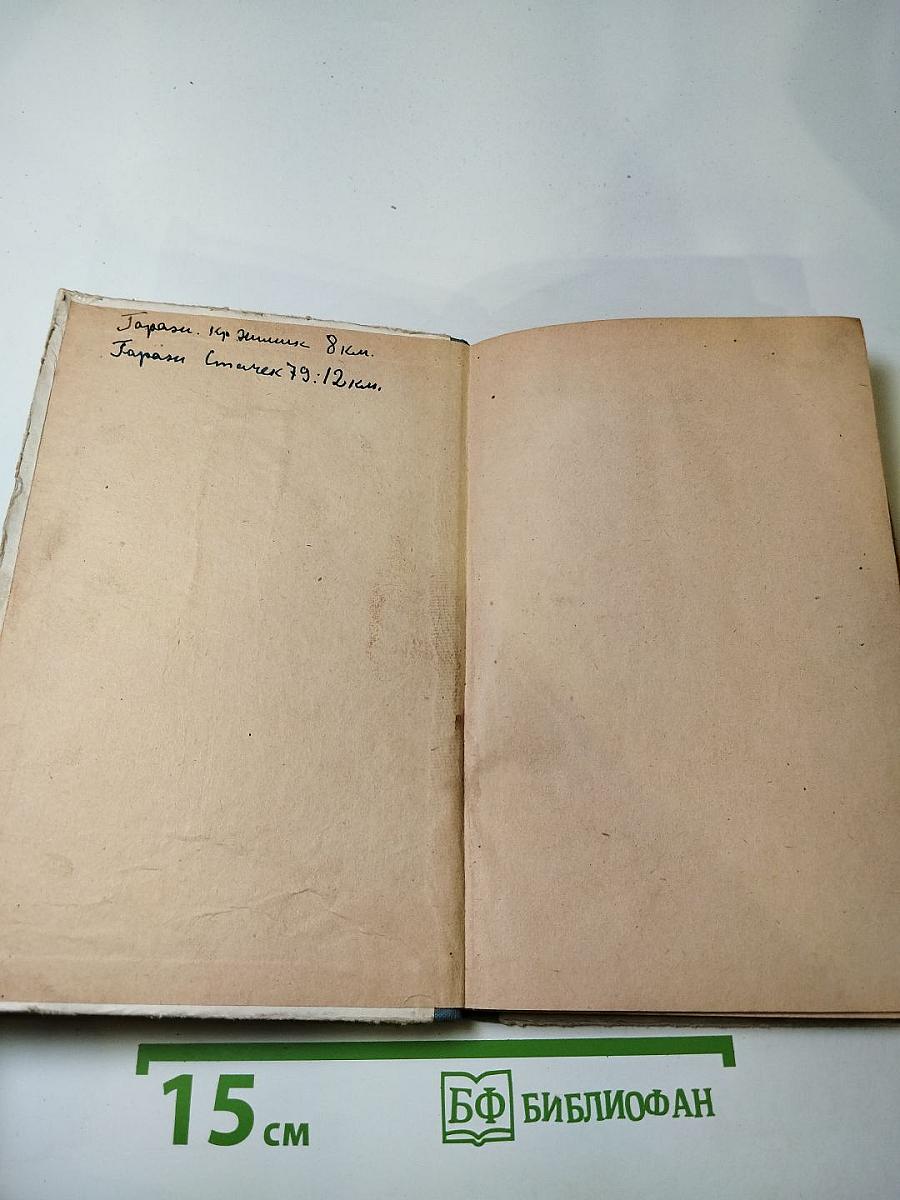 Гараж. кр химик 8 км.
Гараж Стачек 79: 12 км.
15 см
БФ БИБЛИОФАН